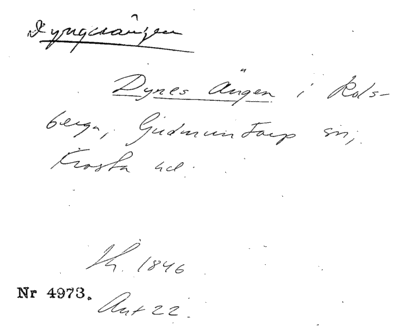 Dyngesängen
Dynes Ängen i Rols-
berga, Gudmuntorp sn,
Frosta hd.
Sk. 1846
Nr 4973.
Ant 22.